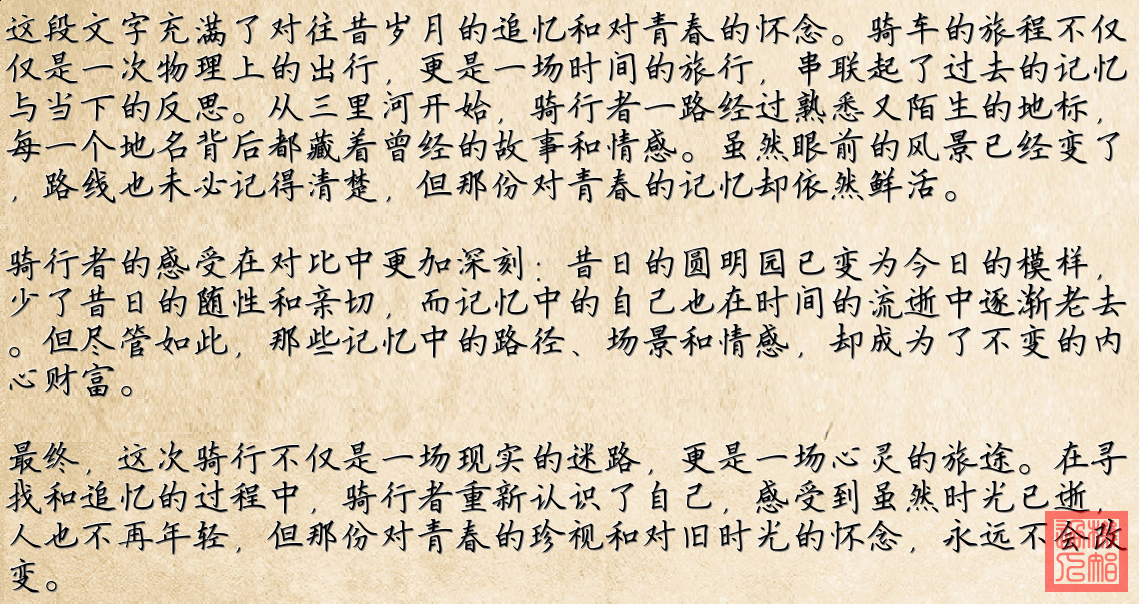 这段文字充满了对往昔岁月的追忆和对青春的怀念。骑车的旅程不仅
仅是一次物理上的出行，更是一场时间的旅行，串联起了过去的记忆
与当下的反思。从三里河开始，骑行者一路经过熟悉又陌生的地标，
每一个地名背后都藏着曾经的故事和情感。虽然眼前的风景已经变了
，路线也未必记得清楚，但那份对青春的记忆却依然鲜活。
骑行者的感受在对比中更加深刻：昔日的圆明园已变为今日的模样，
少了昔日的随性和亲切，而记忆中的自己也在时间的流逝中逐渐老去
。但尽管如此，那些记忆中的路径、场景和情感，却成为了不变的内
心财富。
最终，这次骑行不仅是一场现实的迷路，更是一场心灵的旅途。在寻
找和追忆的过程中，骑行者重新认识了自己，感受到虽然时光已逝，
人也不再年轻，但那份对青春的珍视和对旧时光的怀念，永远不会改
变。